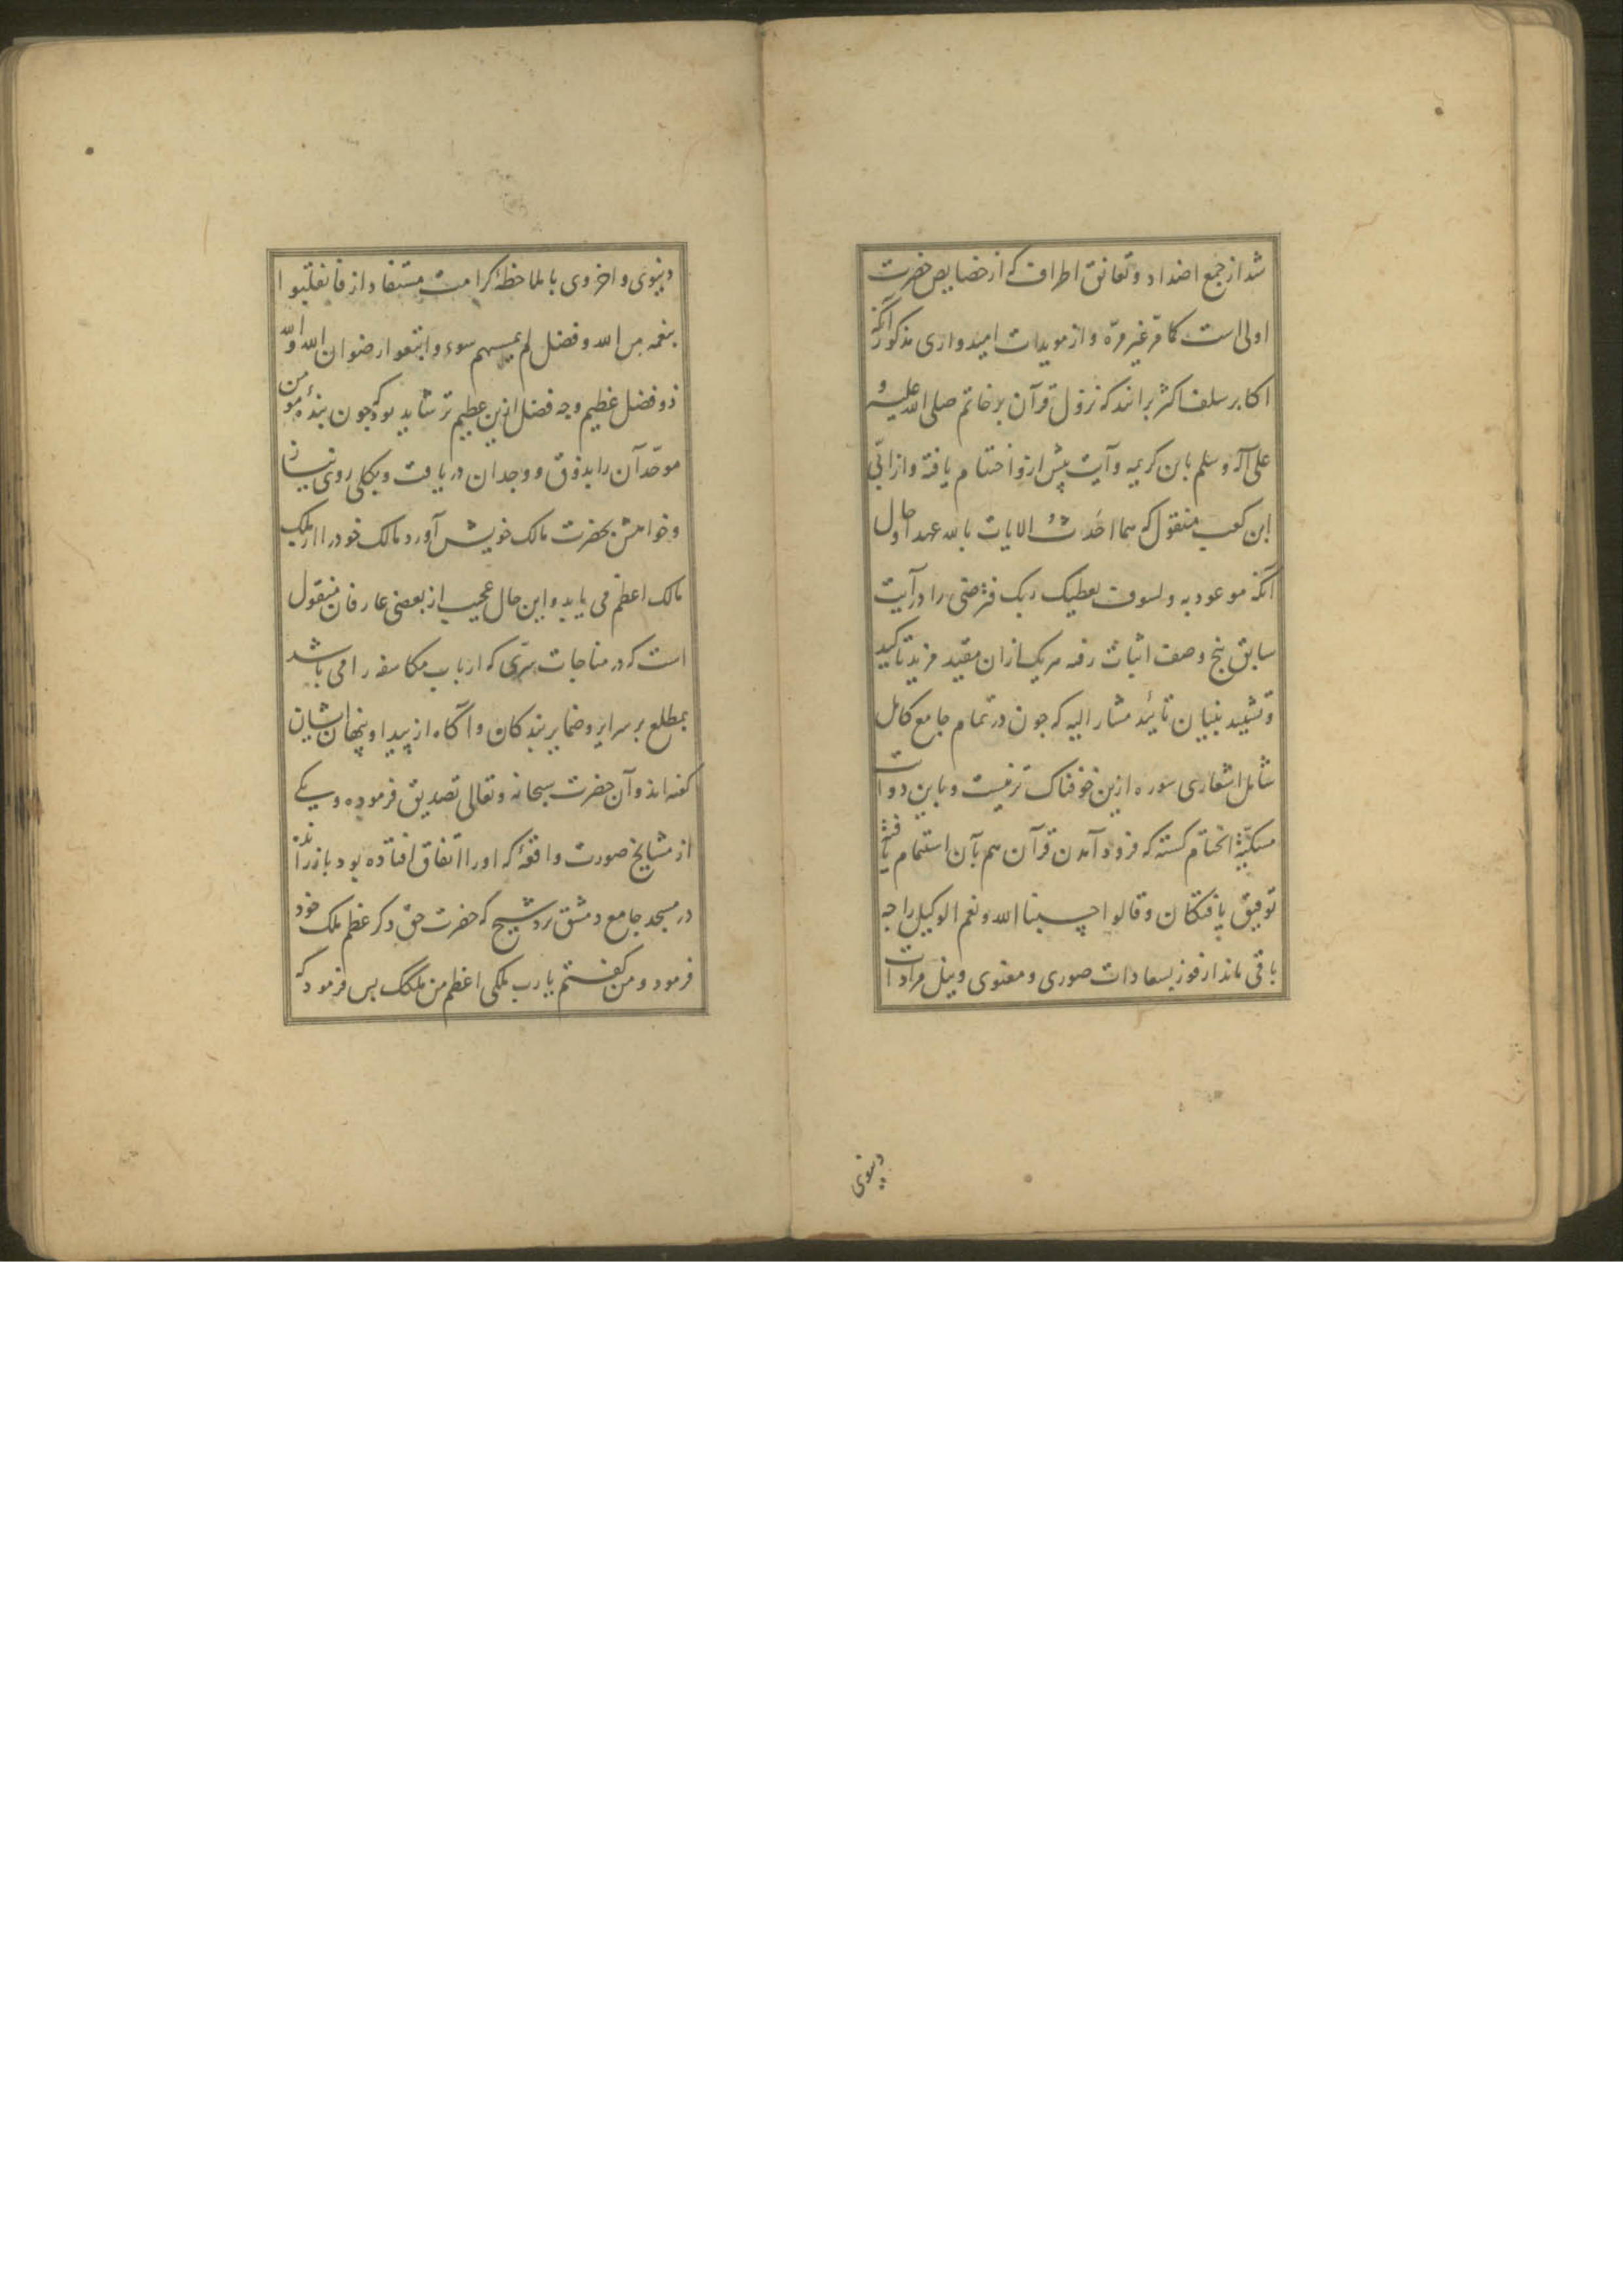 شد از جمع اضداد و تعانق اطراف که از خصایص حضرت
اولی است کما مر غیر مرّه و از مویدات امیدواری مذکور آنکه
اکابر سلف اکثر برانند که نزول قرآن بر خاتم صلی الله علیه و
علی آله و سلم باین کریمه و آیت پیش ازو اختتام یافته و از ابّی
ابن کعب منقول که هما احدث الایات بالله عهدا و حال
آنکه موعود به و لسوف یعطیک ربک فترضی را در آیت
سابق پنج وصف اثبات رفته هر یک ازان مفید مزید تاکید
و تشیید بنیان تائید مشار الیه که چون در تمام جامع کامل
شامل اشعاری سوره ازین خوفناک تر نیست و باین دو آیت
مسکیّة الختام کشته که فرود آمدن قرآن هم بآن استتمام یافته
توفیق یافتکان و قالوا حسبنا الله و نعم الوکیل را چه
باقی ماند از فوز بسعادات صوری و معنوی و نیل مرادات
دنیوی
دنیوی و اخروی با ملاحظهٔ کرامت مستفاد از فانقلبوا
بنعمه من الله و فضل لم یمسسهم سوء و اتبعوا رضوان الله و الله
ذو فضل عظیم و چه فضل ازین عظیم تر شاید بود که چون بندهٔ مومن
موحّد آن را بذوق و وجدان دریافت و بکلی روی نیاز
و خواهش بحضرت مالک خویش آورد مالک خود را از ملک
مالک اعظم می یابد و این حال عجیب از بعضی عارفان منقول
است که در مناجات سرّی که ارباب مکاشفه را می باشد
بمطلع بر سرایر و ضمایر بندکان و آکاه از پیدا و پنهان ایشان
کفته اند و آن حضرت سبحانه و تعالی تصدیق فرموده و یکی
از مشایخ صورت واقعهٔ که او را اتفاق افتاده بود باز راند
در مسجد جامع دمشق نزد شیخ که حضرت حق ذکر عظم ملک خود
فرمود و من کفتم یا رب ملکی اعظم من ملکک پس فرمود که